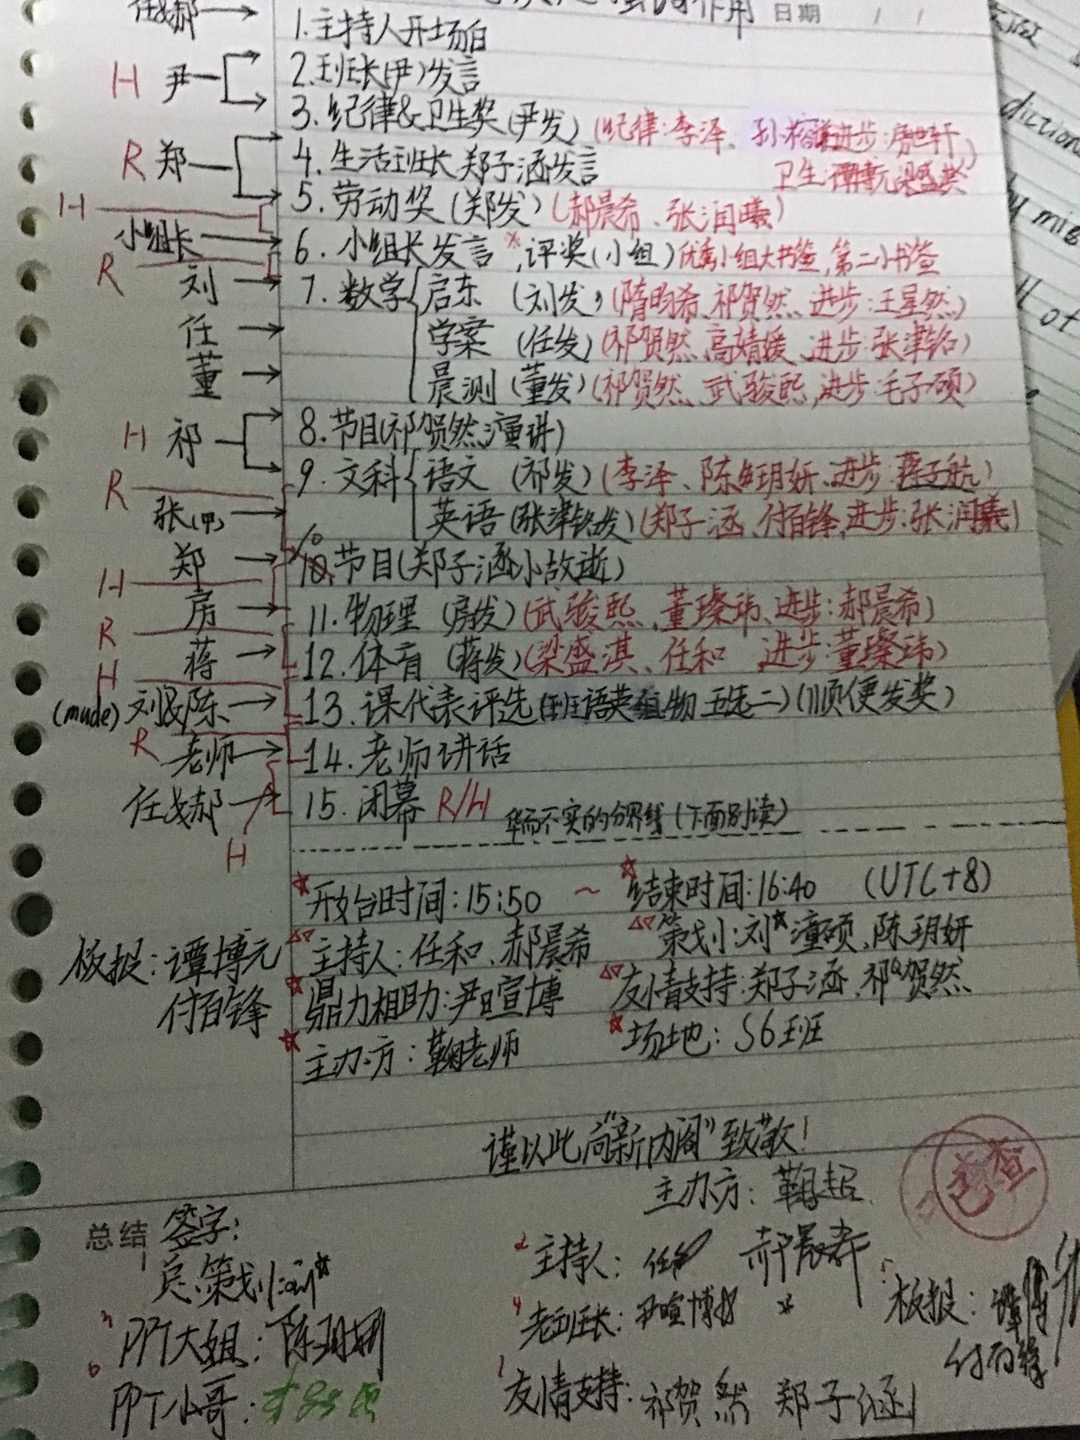 作用 日期 / /
任&郝 1.主持人开场白
H 尹 2.班长(尹)发言
3.纪律&卫生奖(尹发)(纪律:李泽、 进步:
R 郑 4.生活班长郑子涵发言 卫生:
H 5.劳动奖(郑发)(郝晨希、张润曦)
小组长 6.小组长发言*,评奖(小组)优秀小组大书签,第二小书签
R 刘 7.数学 启东 (刘发)(隋昀希、祁贺然、进步:王星然)
任 学案 (任发)(祁贺然、高婧媛、进步:张津铭)
董 晨测 (董发)(祁贺然、武骏熙,进步:毛子硕)
H 祁 8.节目(祁贺然演讲)
R 9.文科 语文 (祁发)(李泽、陈玥妍、进步:
张(甲) 英语(张津铭发)(郑子涵、付百锋,进步:张润曦)
郑 10.节目(郑子涵小故逝)
H 房 11.物理 (房发)(武骏熙、董璨玮、进步:郝晨希)
R 蒋 12.体育 (蒋发)(梁盛淇、任和 进步:董璨玮)
H (mude)刘&陈 13.课代表评选(班语英组物 五选二)(顺便发奖)
R 老师 14.老师讲话
任&郝 15.闭幕 R/H
H 华而不实的分界线(下面别读)
开始时间:15:50 ~ 结束时间:16:40 (UTC+8)
主持人:任和、郝晨希 策划:刘*潼硕、陈玥妍
板报:谭博元
鼎力相助:尹暄博 友情支持:郑子涵、祁贺然
付百锋
主办方:鞠老师 场地:S6班
谨以此向"新内阁"致敬!
主办方:鞠超
已查
总结 签字:
总策划:
主持人: 任和 郝晨希
PPT大姐:陈玥妍
老班长:尹暄博
板报:谭博
付百锋
PPT小哥:
友情支持:祁贺然 郑子涵
diction